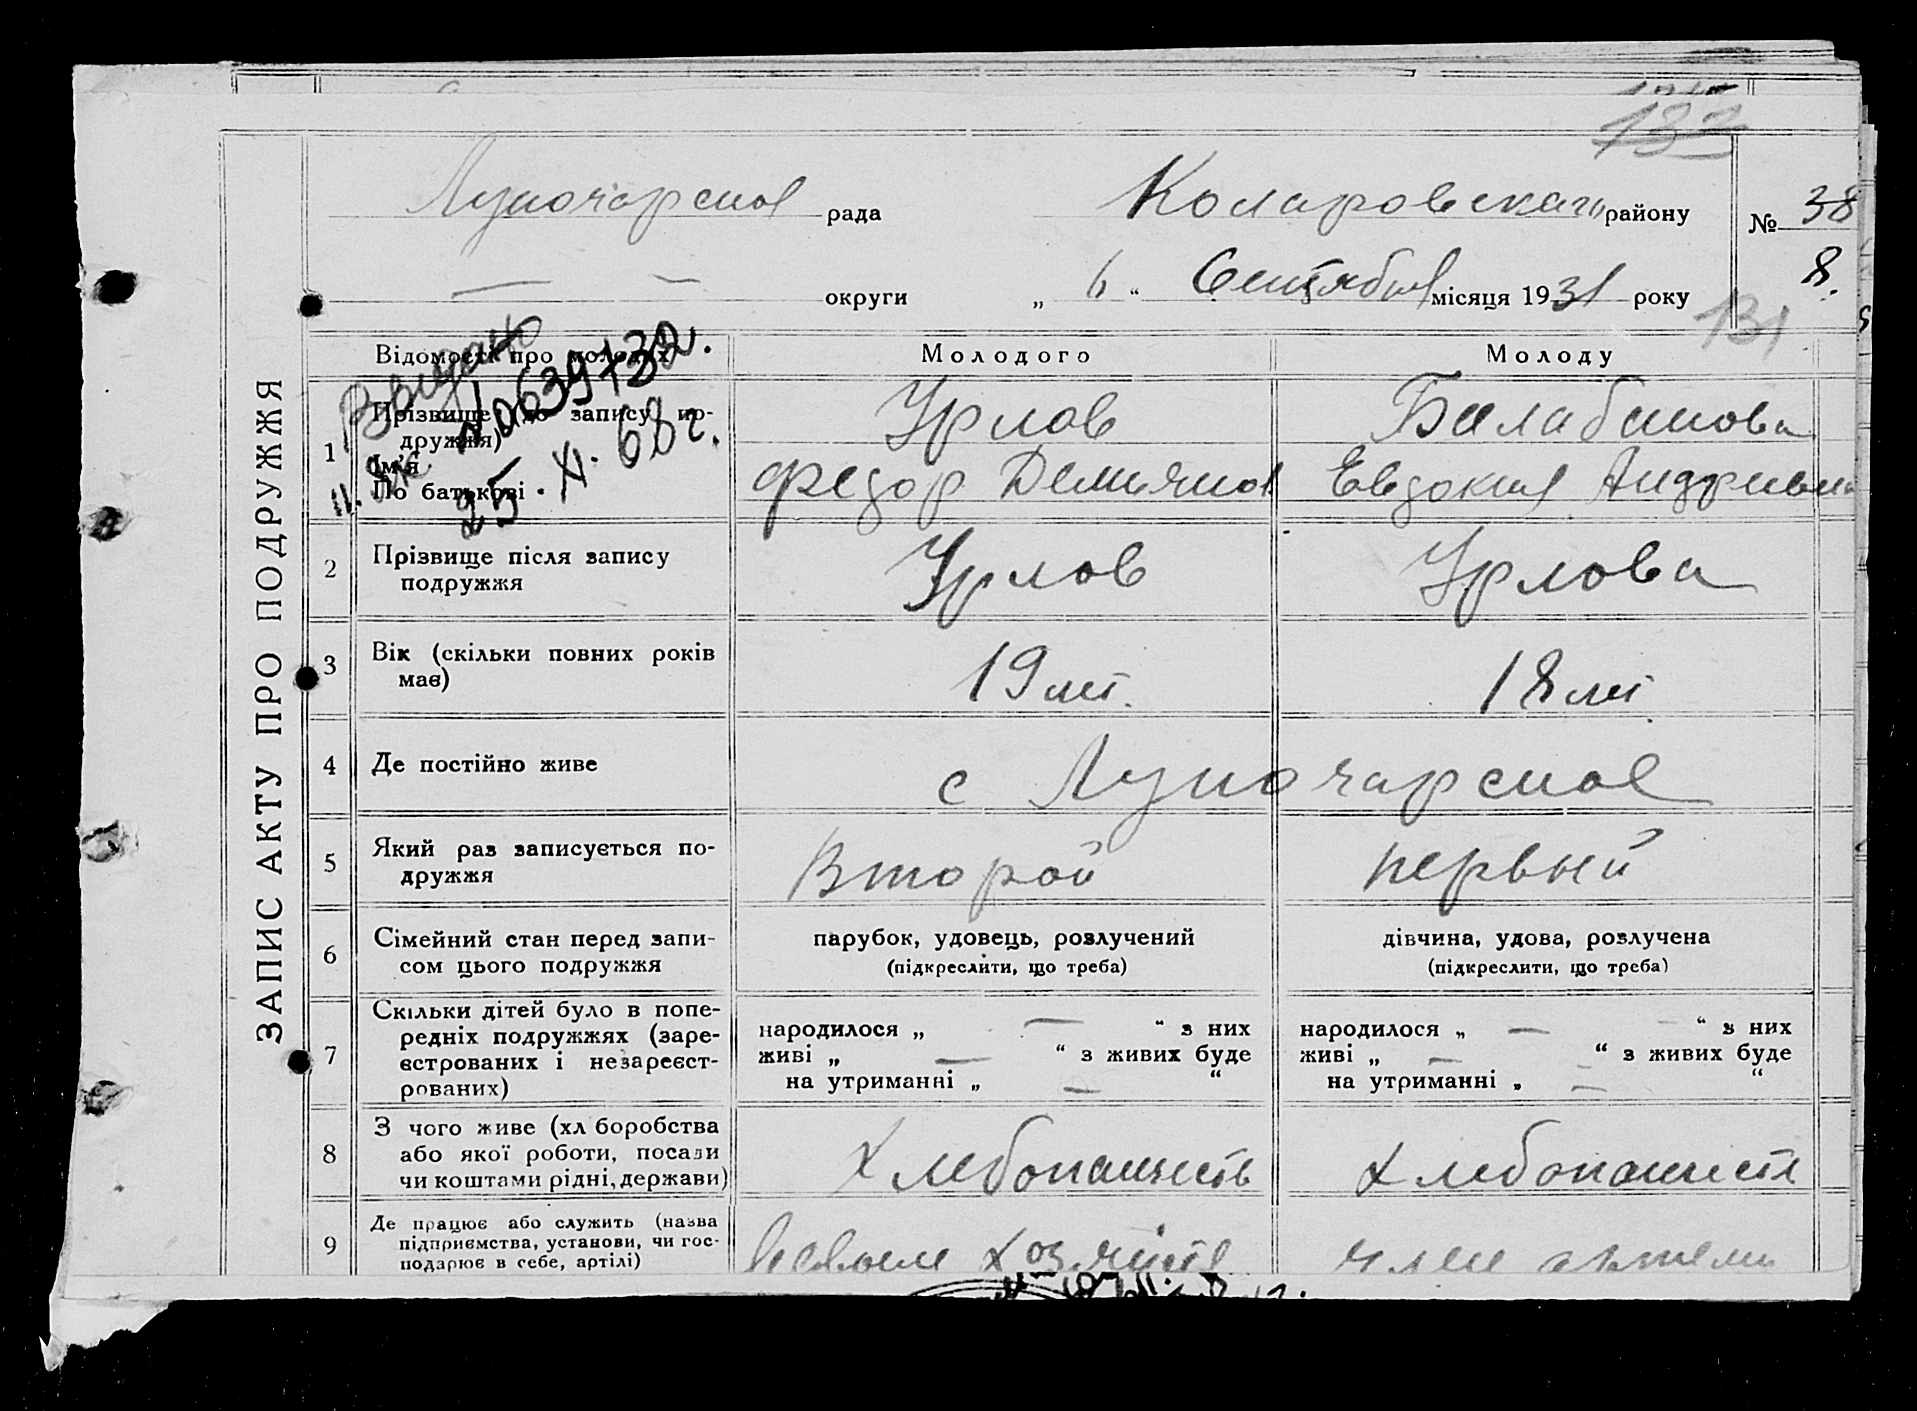 133
Луночарское рада Коларовскаго району № 38
8.
— — округи „ 6 “ Сентября місяця 1931 року
131
ЗАПИС АКТУ ПРО ПОДРУЖЖЯ
Відомості про молодих Молодого Молоду
Выдано
№ 639732.
25. XI. 68 г.
1 Прізвище до запису по- Урлов Балабанова
дружжя)
Ім'я Федор Демьянов Евдокия Андреевна
По батькові
2 Прізвище після запису Урлов Урлова
подружжя
3 Вік (скільки повних років 19 лет. 18 лет
має)
4 Де постійно живе с Луночарское
5 Який раз записується по- Второй первый
дружжя
6 Сімейний стан перед запи- парубок, удовець, розлучений дівчина, удова, розлучена
сом цього подружжя (підкреслити, що треба) (підкреслити, що треба)
7 Скільки дітей було в попе-
редніх подружжях (заре- народилося „ — “ з них народилося „ — “ з них
єстрованих і незареєст- живі „ — “ з живих буде живі „ — “ з живих буде
рованих) на утриманні „ — “ на утриманні „ — “
8 З чого живе (хл боробства
або якої роботи, посади Хлебопашеств Хлебопашеств
чи коштами рідні, держави)
9 Де працює або служить (назва
підприємства, установи, чи гос- в своем хозяйстве член артели
подарює в себе, артілі)